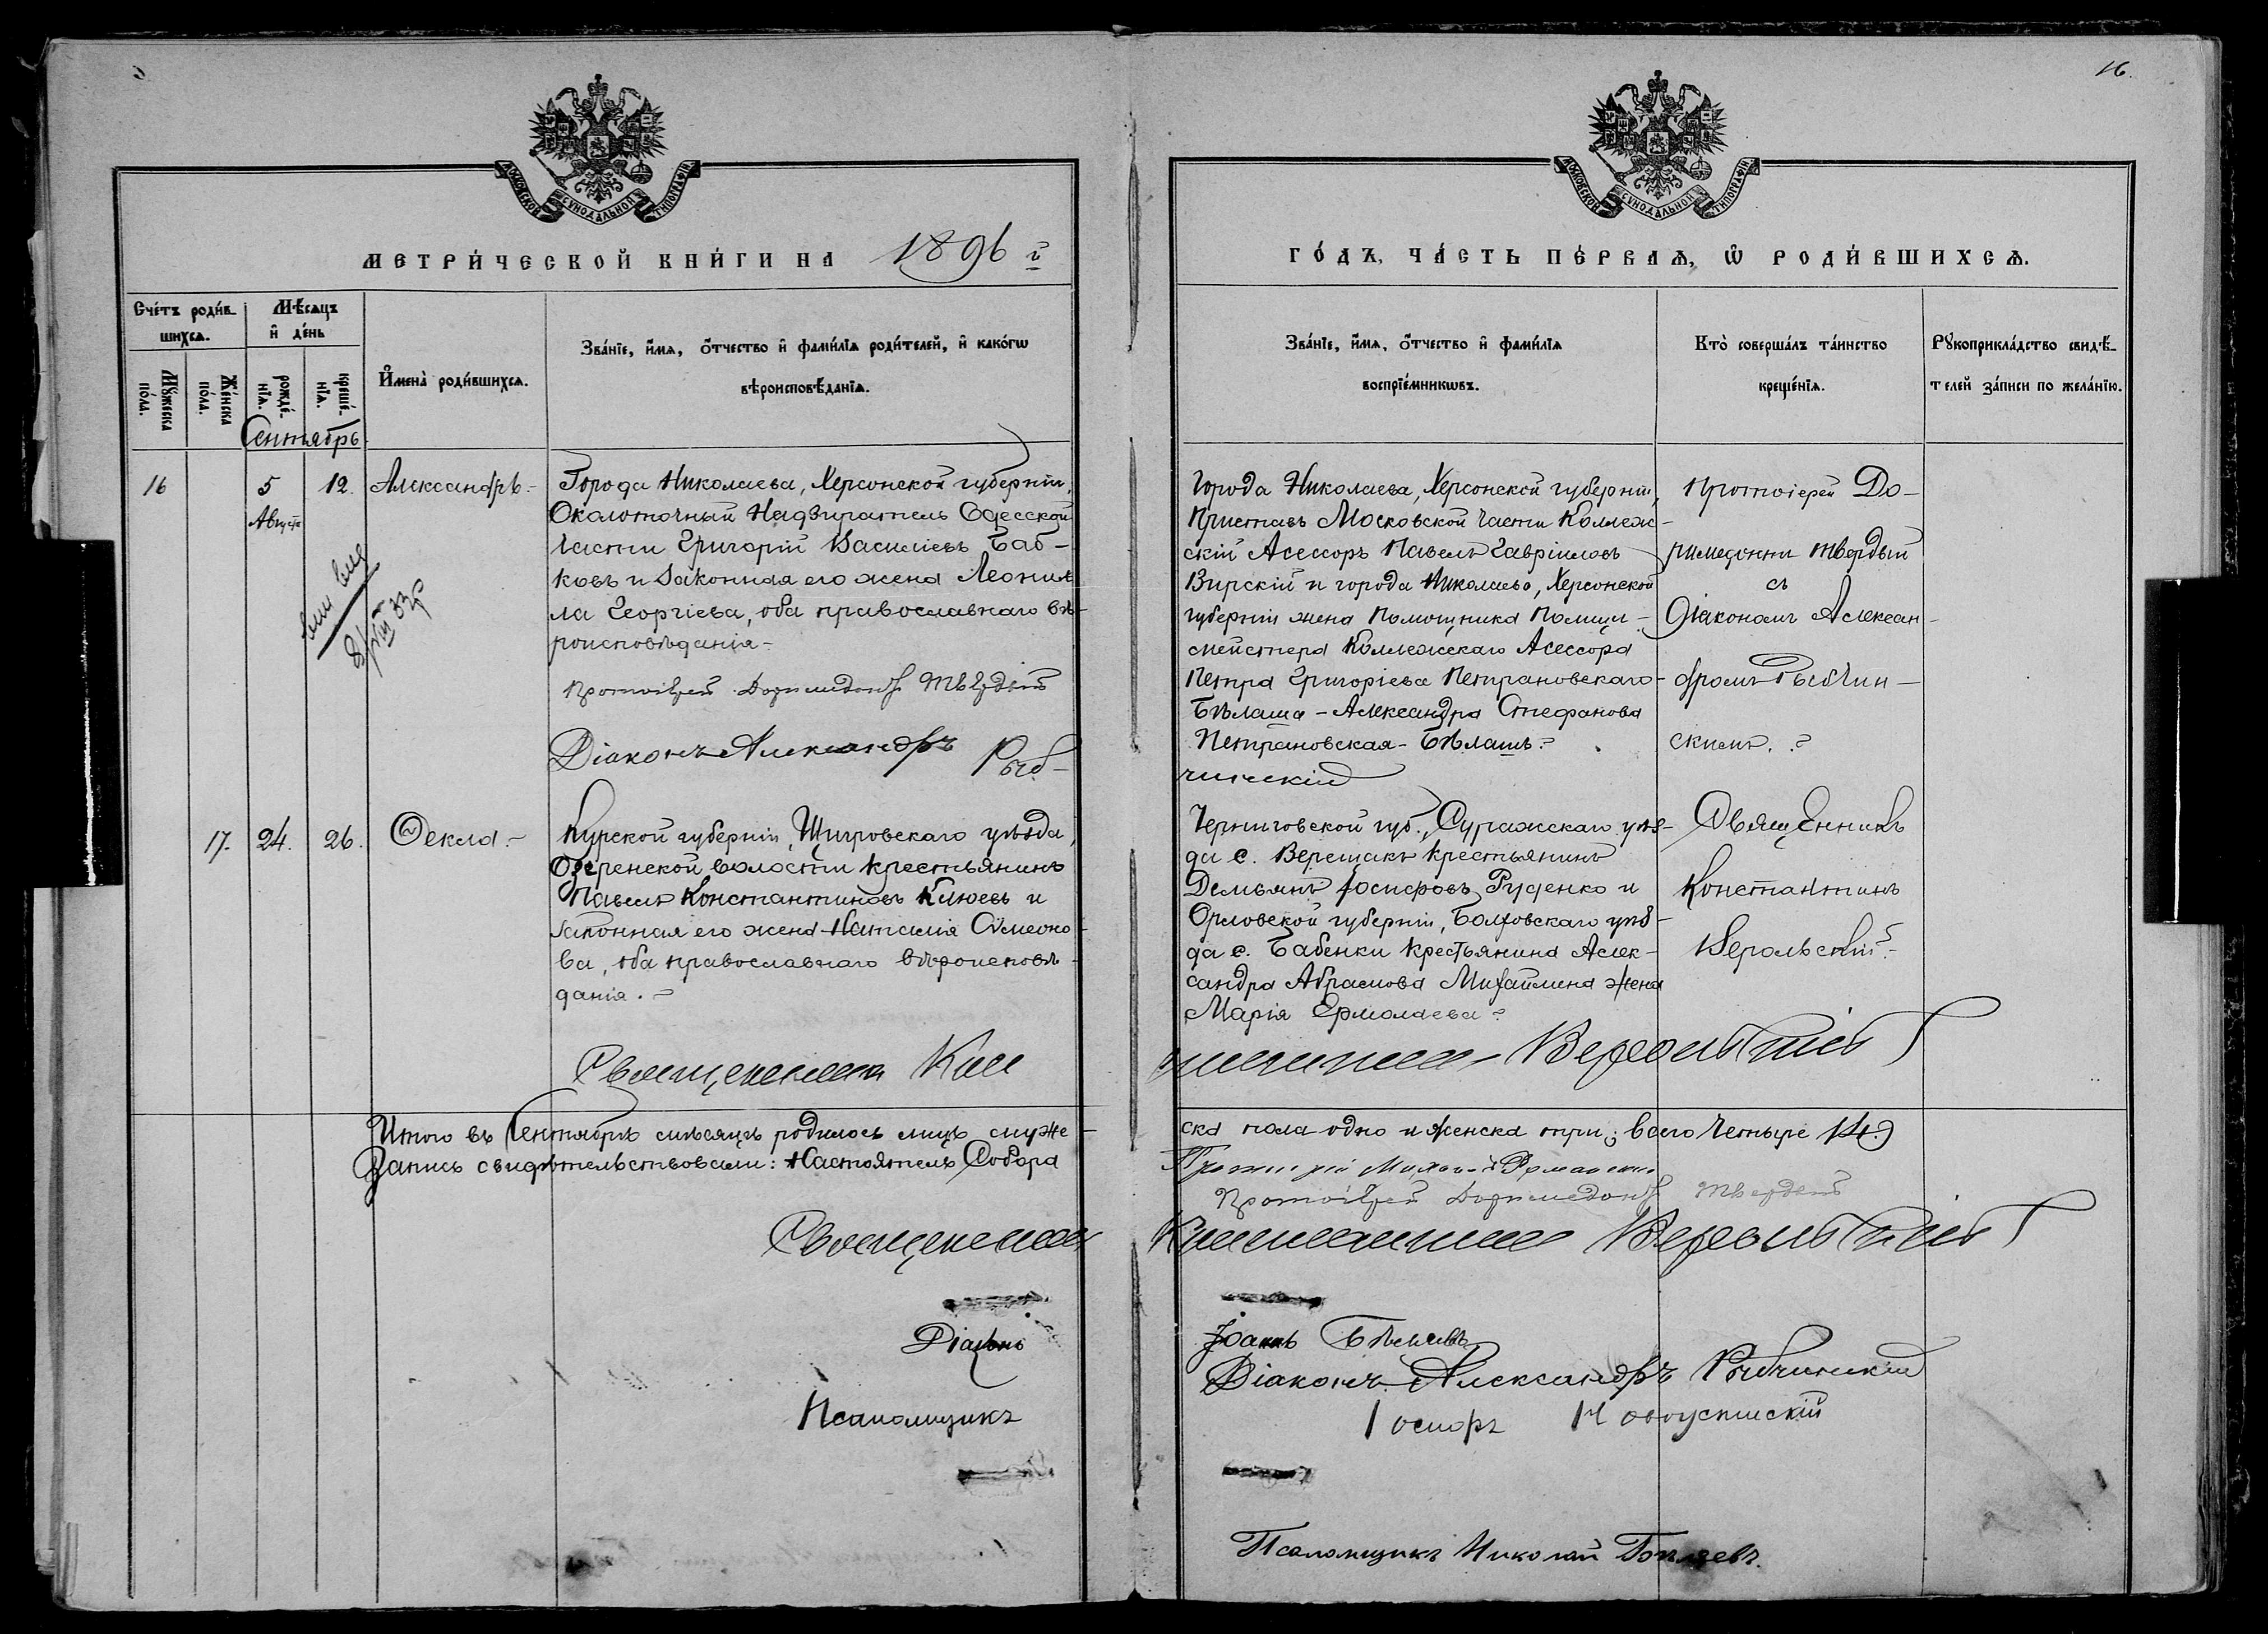 16.
МОСКОВСКОЙ СѴНОДАЛЬНОЙ ТИПОГРАФІИ
МОСКОВСКОЙ СѴНОДАЛЬНОЙ ТИПОГРАФІИ
МЕТРИ́ЧЕСКОЙ КНИ́ГИ НА 1896 й
ГО́ДЪ, ЧА́СТЬ ПЕ́РВАѦ, Ѿ РОДИ́ВШИХСѦ.
Сче́тъ роди́в-
шихсѧ.
Мꙋ́жеска по́ла.
Же́нска по́ла.
Мѣ́сѧцъ
и҆ де́нь
рожде́-
нїѧ.
креще́-
нїѧ.
И҆мена̀ роди́вшихсѧ.
Зва́нїе, и҆́мѧ, ѻ҆́тчество и҆ фами́лїѧ роди́телей, и҆ како́гѡ
вѣроисповѣ́данїѧ.
Зва́нїе, и҆́мѧ, ѻ҆́тчество и҆ фами́лїѧ
воспрїе́мникѡвъ.
Кто̀ соверша́лъ та́инство
креще́нїѧ.
Рꙋкоприкла́дство свидѣ́-
телей за́писи по жела́нїю.
Сентябрь
16
5
Августа
12.
Александръ.-
Города Николаева, Херсонской губерніи,
Околоточный Надзиратель Одесской
части Григорій Василіевъ Баб-
ковъ и законная его жена Леонил
ла Георгіева, оба православнаго вѣ-
роисповѣданія-
Протоіерей Доримедонтъ Твердый
Діаконъ Александръ Рыб-
чинскій
Города Николаева, Херсонской губерніи,
Приставъ Московской части Коллеж-
скій Асессоръ Павелъ Гавріиловъ
Вирскій и города Николаева, Херсонской
губерніи жена Помощника Полиц-
мейстера Коллежскаго Асессора
Петра Григоріева Петрановскаго-
Бѣлаша - Александра Стефанова
Петрановская-Бѣлашъ.
Протоіерей До-
римедонтъ Твердый
съ
Діакономъ Алексан-
дромъ Рыбчин-
скимъ.
17.
24.
26.
Ѳекла.-
Курской губерніи, Щигровскаго уѣзда,
Озеренской волости крестьянинъ
Павелъ Константиновъ Клюевъ и
законная его жена Наталія Симеоно-
ва, оба православнаго вѣроисповѣ-
данія.
Священникъ
Черниговской губ., Суражскаго уѣз-
да с. Верещакъ крестьянинъ
Демьянъ Іосифовъ Руденко и
Орловской губерніи, Болховскаго уѣз-
да с. Бабенки крестьянина Алек-
сандра Абрамова Михайлина жена
Марія Ермолаева
Верольскій
Священникъ
Константинъ
Верольскій.
Итого въ Сентябрѣ мѣсяцѣ родилось лицъ муже-
ска пола одно и женска три; всего четыре (4.)
Запись свидѣтельствовали: Настоятель Собора
Протоіерей
Протоіерей Доримедонтъ Твердый
Священникъ
Константинъ Верольскій
Діаконъ
Іоаннъ
Діаконъ Александръ Рыбчинскій
Псаломщикъ
Псаломщикъ Николай